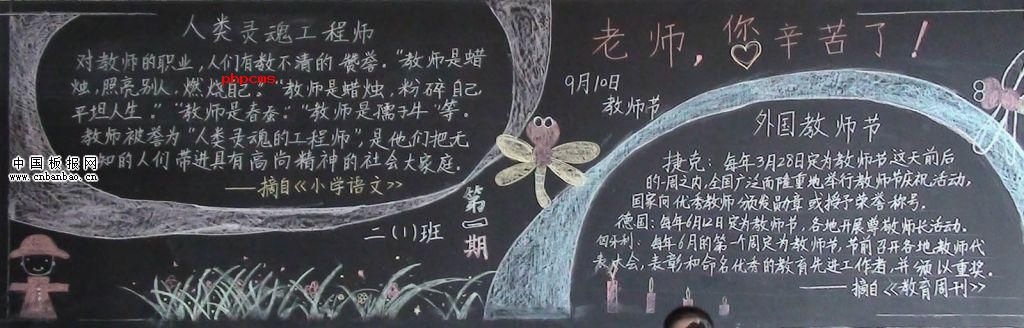 人类灵魂工程师
对教师的职业，人们有数不清的赞誉。“教师是蜡
烛，照亮别人，燃烧自己。”“教师是蜡烛，粉碎自己
平坦人生。”“教师是春蚕。”“教师是孺子牛”等。
教师被誉为“人类灵魂的工程师”，是他们把无
知的人们带进具有高尚精神的社会大家庭。
——摘自《小学语文》
phpcms
中国板报网
www.cnbanbao.cn
二(1)班
第一期
老师，你辛苦了！
9月10日
教师节
外国教师节
捷克：每年3月28日定为教师节这天前后
的一周之内，全国广泛而隆重地举行教师节庆祝活动，
国家向优秀教师颁发勋章或授予荣誉称号。
德国：每年6月12日定为教师节，各地开展尊敬师长活动。
匈牙利：每年6月的第一个周定为教师节，节前召开各地教师代
表大会，表彰和命名优秀的教育先进工作者，并颁以重奖。
——摘自《教育周刊》